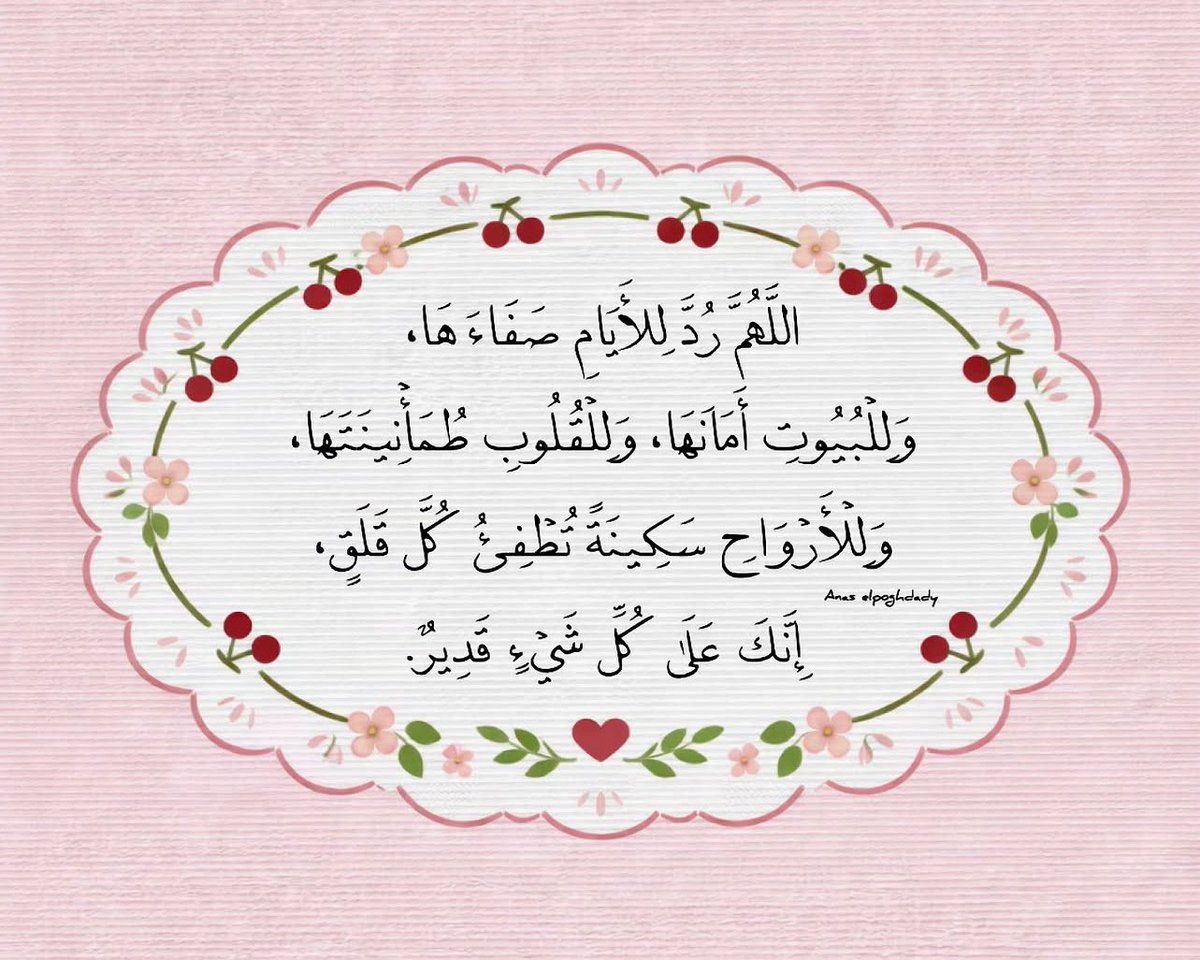 اللَّهُمَّ رُدَّ لِلأَيَامِ صَفَاءَ هَا،
وَلِلْبُيُوتِ أَمَانَهَا، وَلِلْقُلُوبِ طُمَأْنِينَتَهَا،
وَلِلْأَرْوَاحِ سَكِينَةً تُطْفِئُ كُلَّ قَلَقٍ،
Anas elpoghdady
إِنَّكَ عَلَىٰ كُلِّ شَيْءٍ قَدِيرٌ.